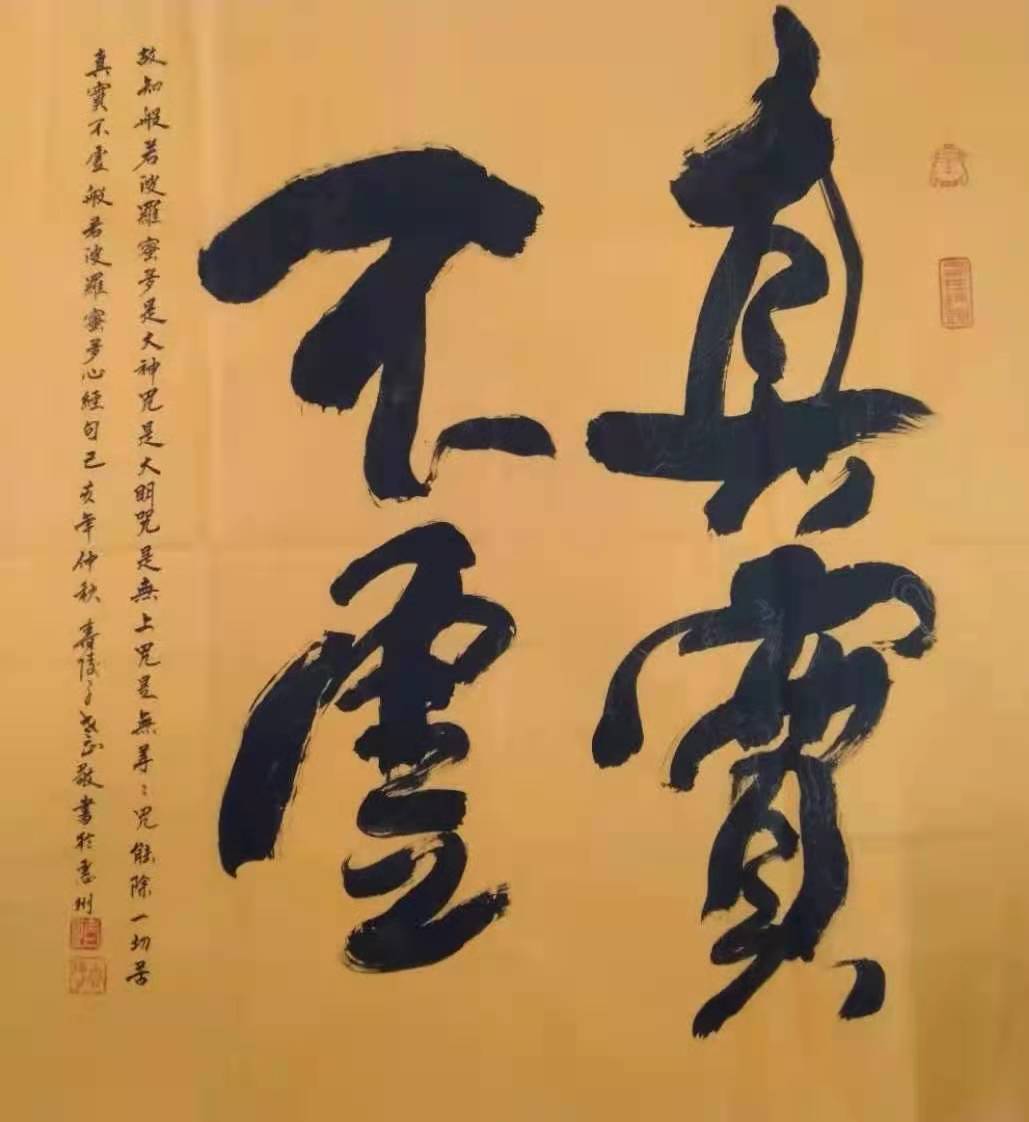 真實
不虛
故知般若波羅蜜多是大神咒是大明咒是無上咒是無等々咒能除一切苦
真實不虛般若波羅蜜多心經句己亥年仲秋陵子敬書於惠州